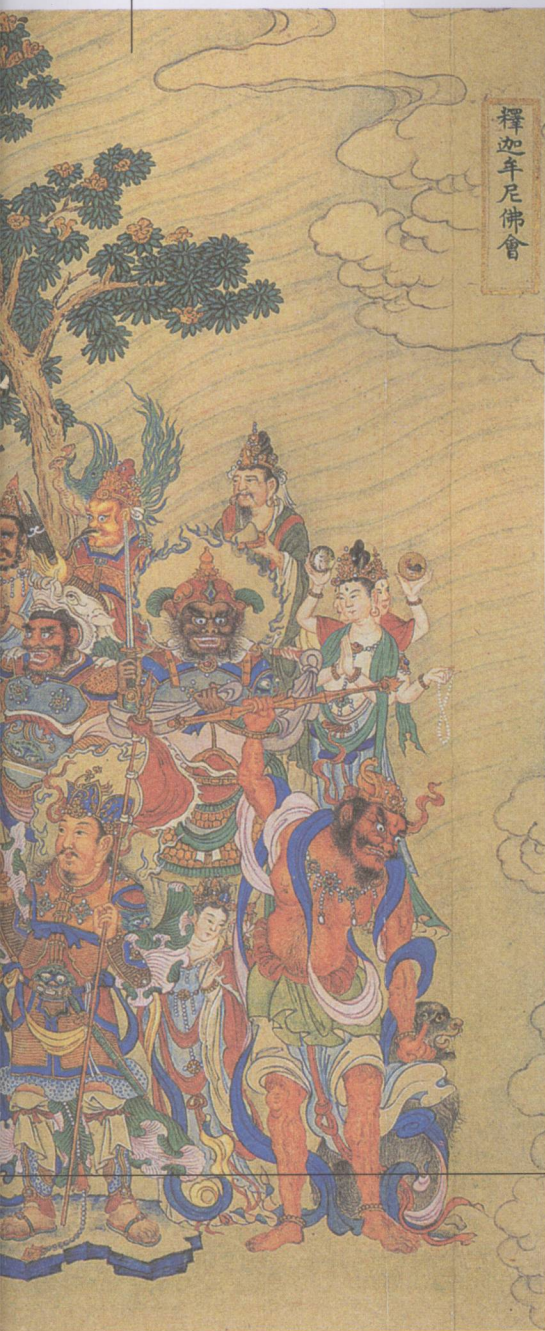 釋迦牟尼佛會